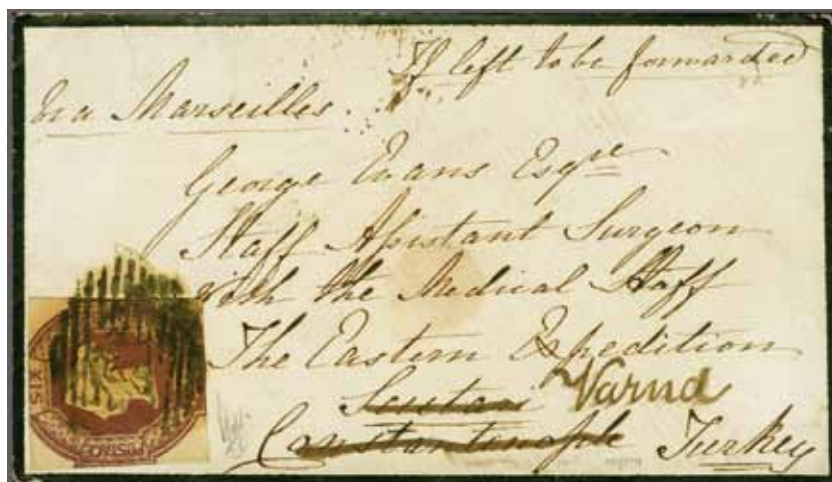 If left to be forwarded
Via Marseilles.
George Evans Esqre
Staff Assistant Surgeon
with the Medical Staff
The Eastern Expedition
Scutari Varna
Constantinople Turkey
POSTAGE
SIX